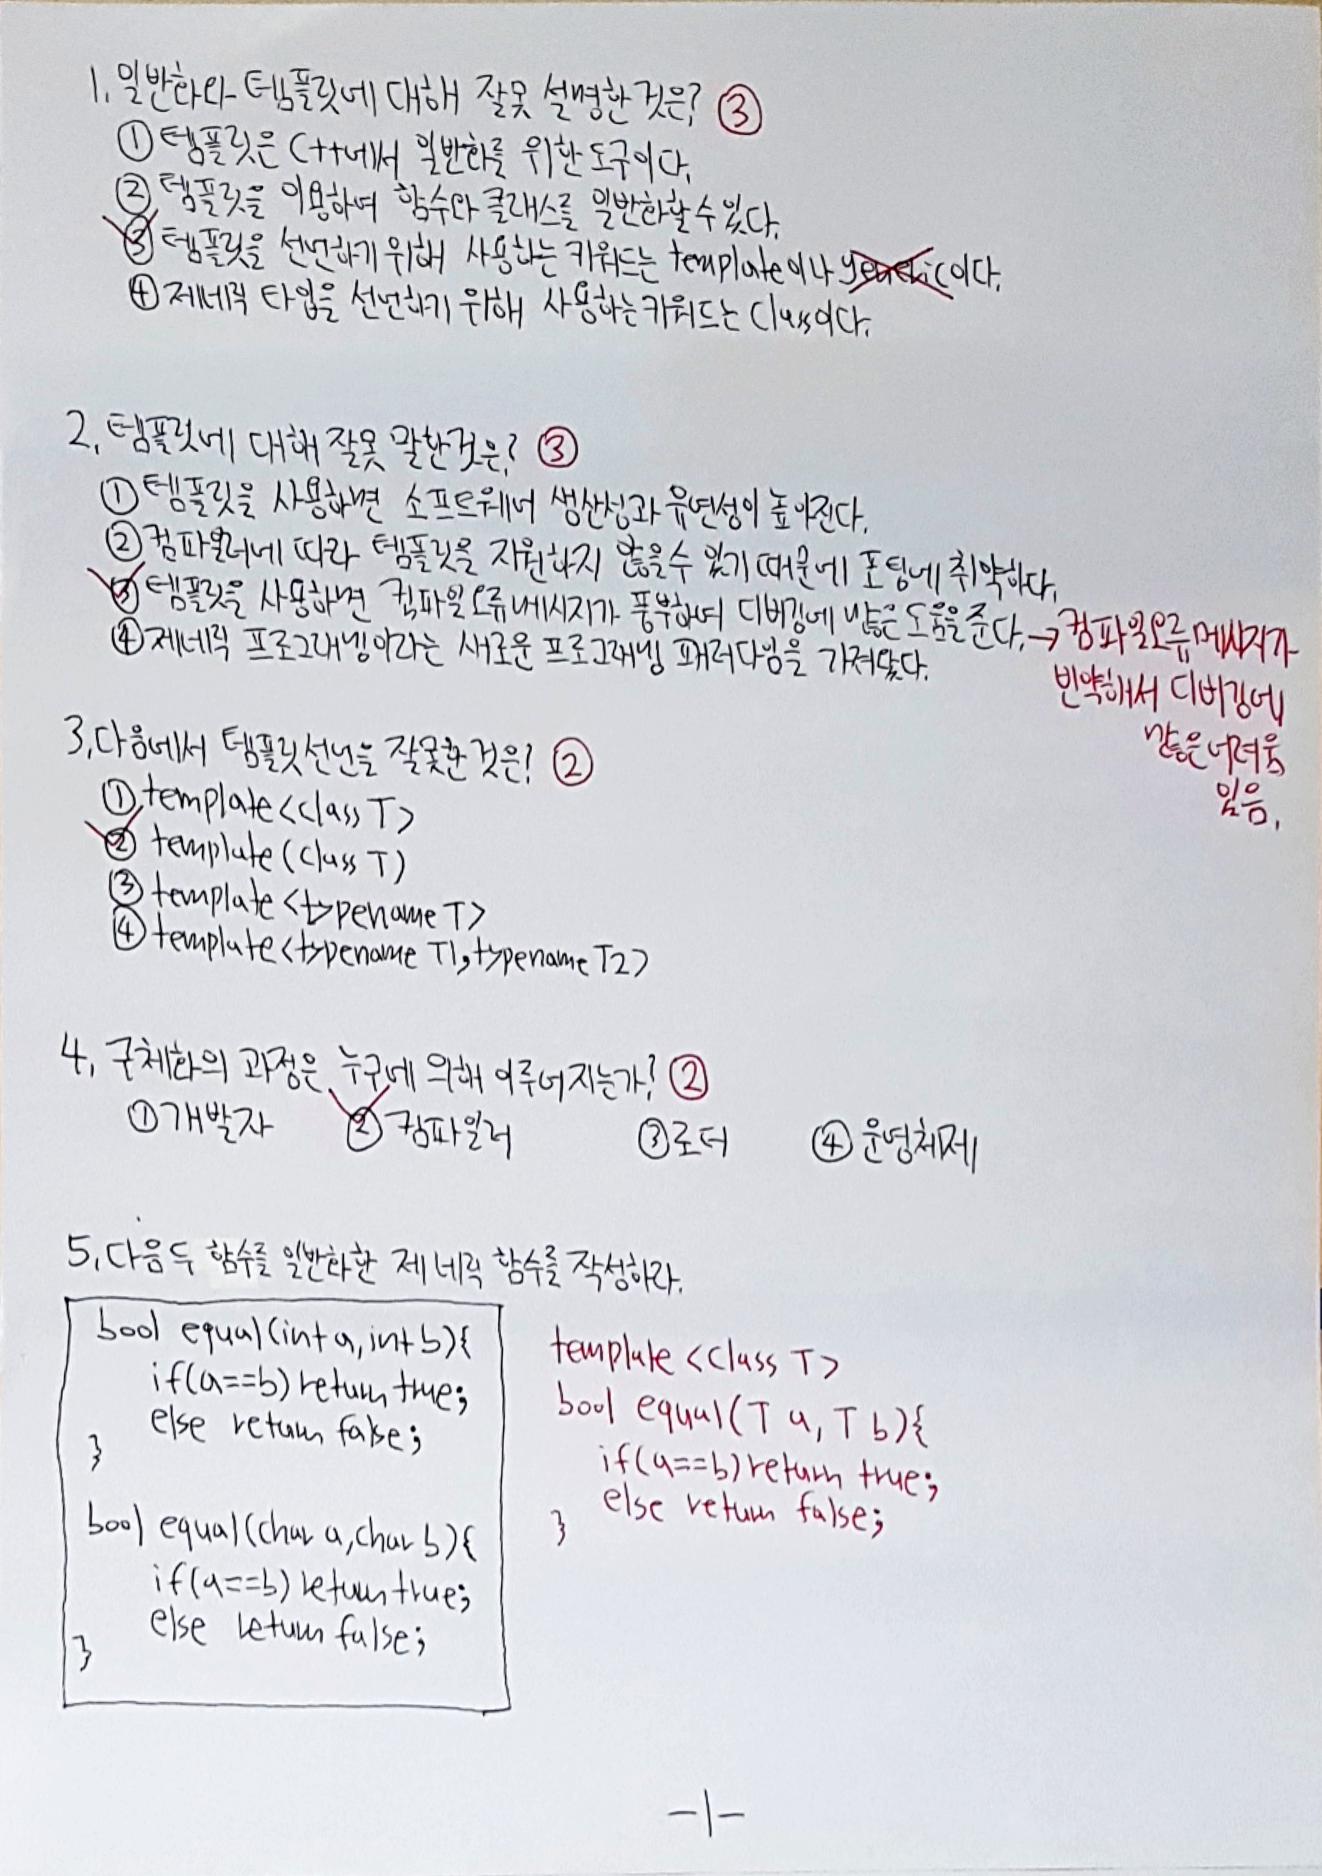 1. 일반화와 템플릿에 대해 잘못 설명한 것은? ③
① 템플릿은 C++에서 일반화를 위한 도구이다.
② 템플릿을 이용하여 함수와 클래스를 일반화할 수 있다.
③ 템플릿을 선언하기 위해 사용하는 키워드는 template이나 generic이다.
④ 제네릭 타입을 선언하기 위해 사용하는 키워드는 class이다.
2. 템플릿에 대해 잘못 말한 것은? ③
① 템플릿을 사용하면 소프트웨어 생산성과 유연성이 높아진다.
② 컴파일러에 따라 템플릿을 지원하지 않을 수 있기 때문에 포팅에 취약하다.
③ 템플릿을 사용하면 컴파일 오류 메시지가 풍부하여 디버깅에 많은 도움을 준다. → 컴파일 오류 메시지가
빈약해서 디버깅에
많은 어려움
있음.
④ 제네릭 프로그래밍이라는 새로운 프로그래밍 패러다임을 가져왔다.
3. 다음에서 템플릿 선언을 잘못한 것은? ②
① template<class T>
② template(class T)
③ template<typename T>
④ template<typename T1, typename T2>
4. 구체화의 과정은 누구에 의해 이루어지는가? ②
① 개발자 ② 컴파일러 ③ 로더 ④ 운영체제
5. 다음 두 함수를 일반화한 제네릭 함수를 작성하라.
bool equal(int a, int b){
if(a==b) return true;
else return false;
}
bool equal(char a, char b){
if(a==b) return true;
else return false;
}
template <class T>
bool equal(T a, T b){
if(a==b) return true;
else return false;
}
-1-